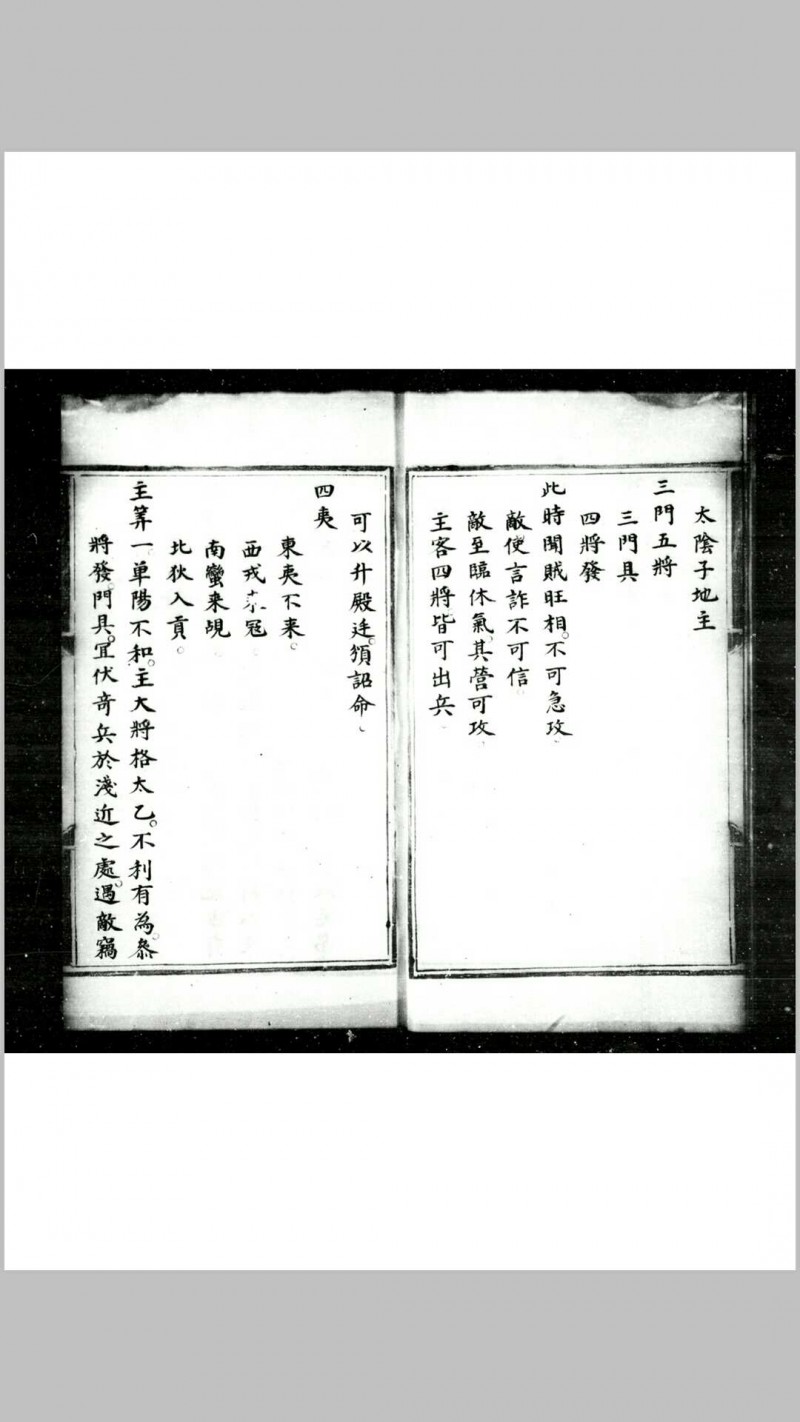 太陰子地主
三門五將
三門具
四將發
此時聞賊旺相。不可急攻
敵使言詐不可信。
敵至臨休氣。其營可攻
主客四將皆可出兵
可以升殿廷。頒詔命
四夷
東夷不来。
西戎冦
南蠻来覘
北狄入貢。
主筭一單陽不和。主大將格太乙。不利有為。叅
將發。門具。冝伏奇兵於淺近之處。遇敵竊